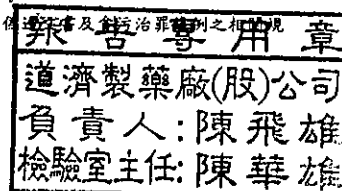 偽造文書及貪污治罪條例之相關規
報告專用章
道濟製藥廠(股)公司
負責人:陳飛雄
檢驗室主任:陳華雄